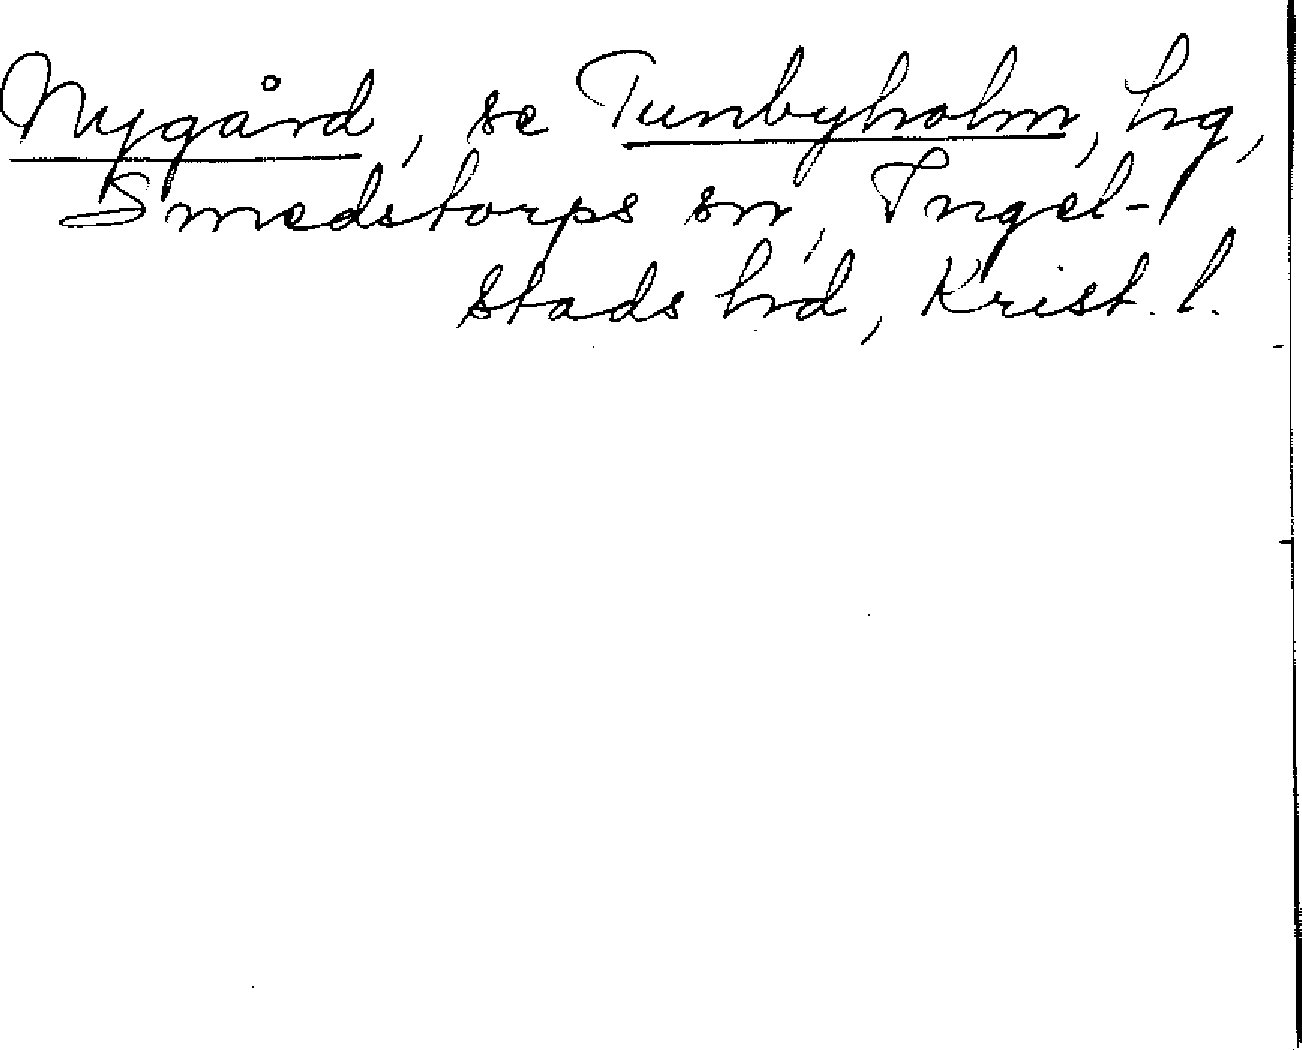 Nygård, se Tunbyholm, hg,
Smedstorps sn, Ingel-
stads hd, Krist. l.